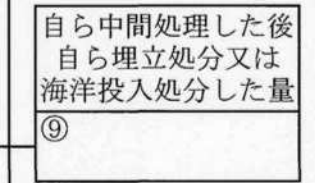 自ら中間処理した後
自ら埋立処分又は
海洋投入処分した量
⑨